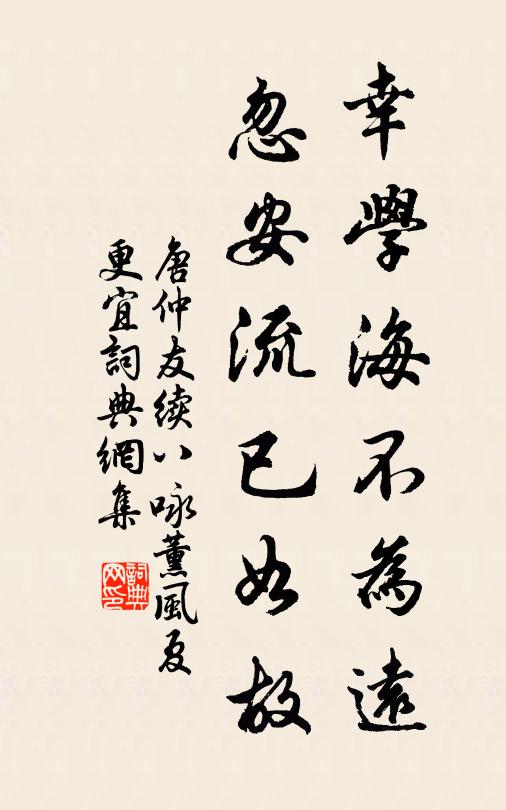 幸學海不為遠
忽安流已如故
唐仲友續八咏薰風夏
更宜詞典網集
詞典
网印